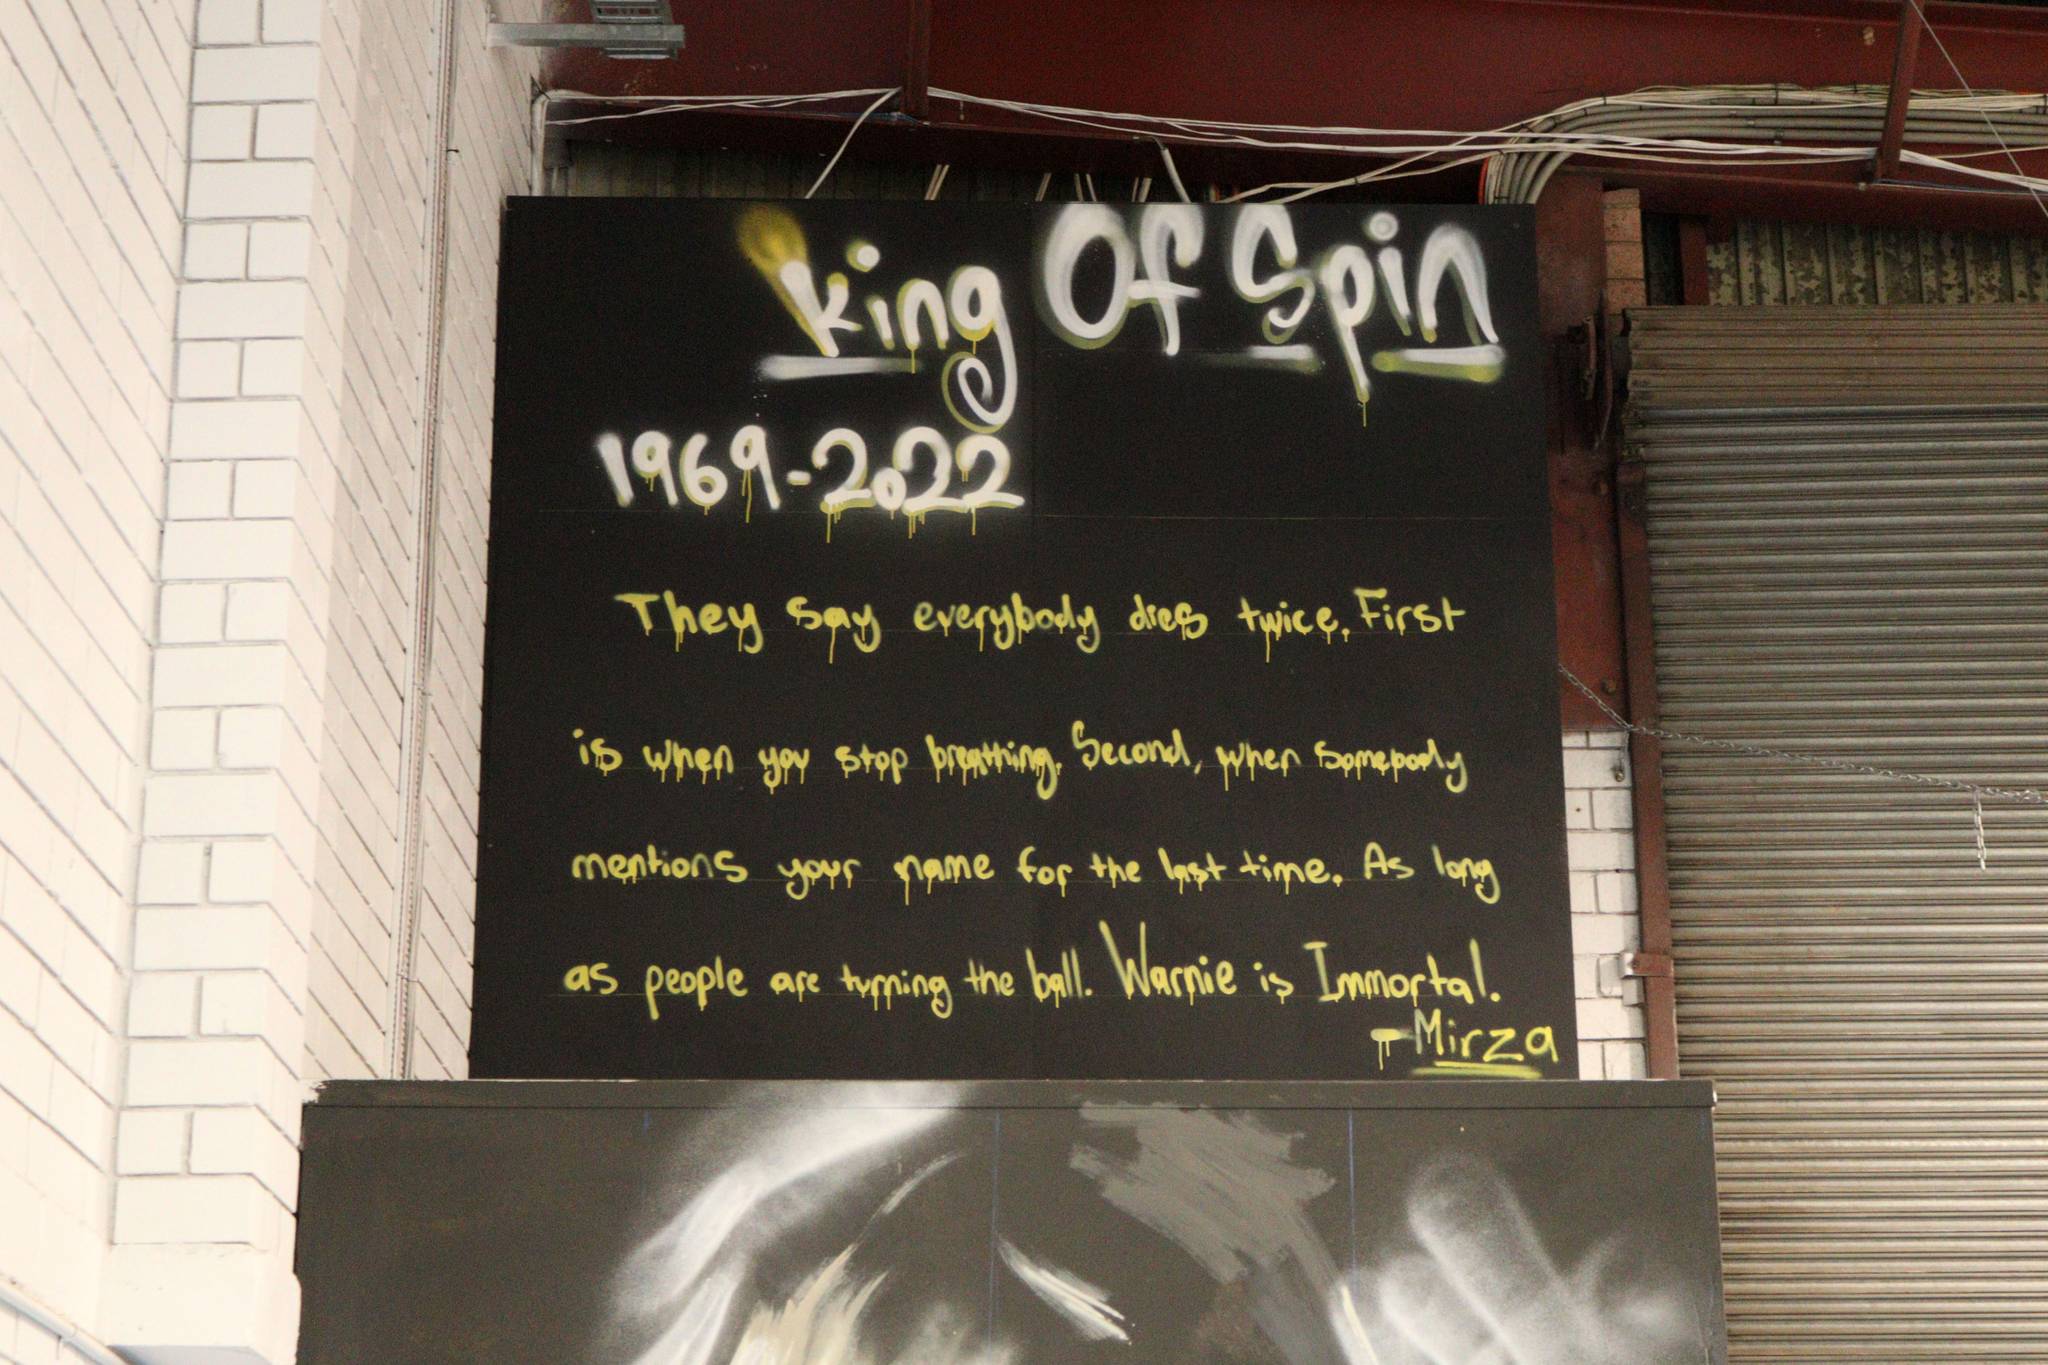 King Of Spin
1969-2022
They say everybody dies twice. First
is when you stop breathing. Second, when somebody
mentions your name for the last time. As long
as people are turning the ball. Warnie is Immortal.
-Mirza